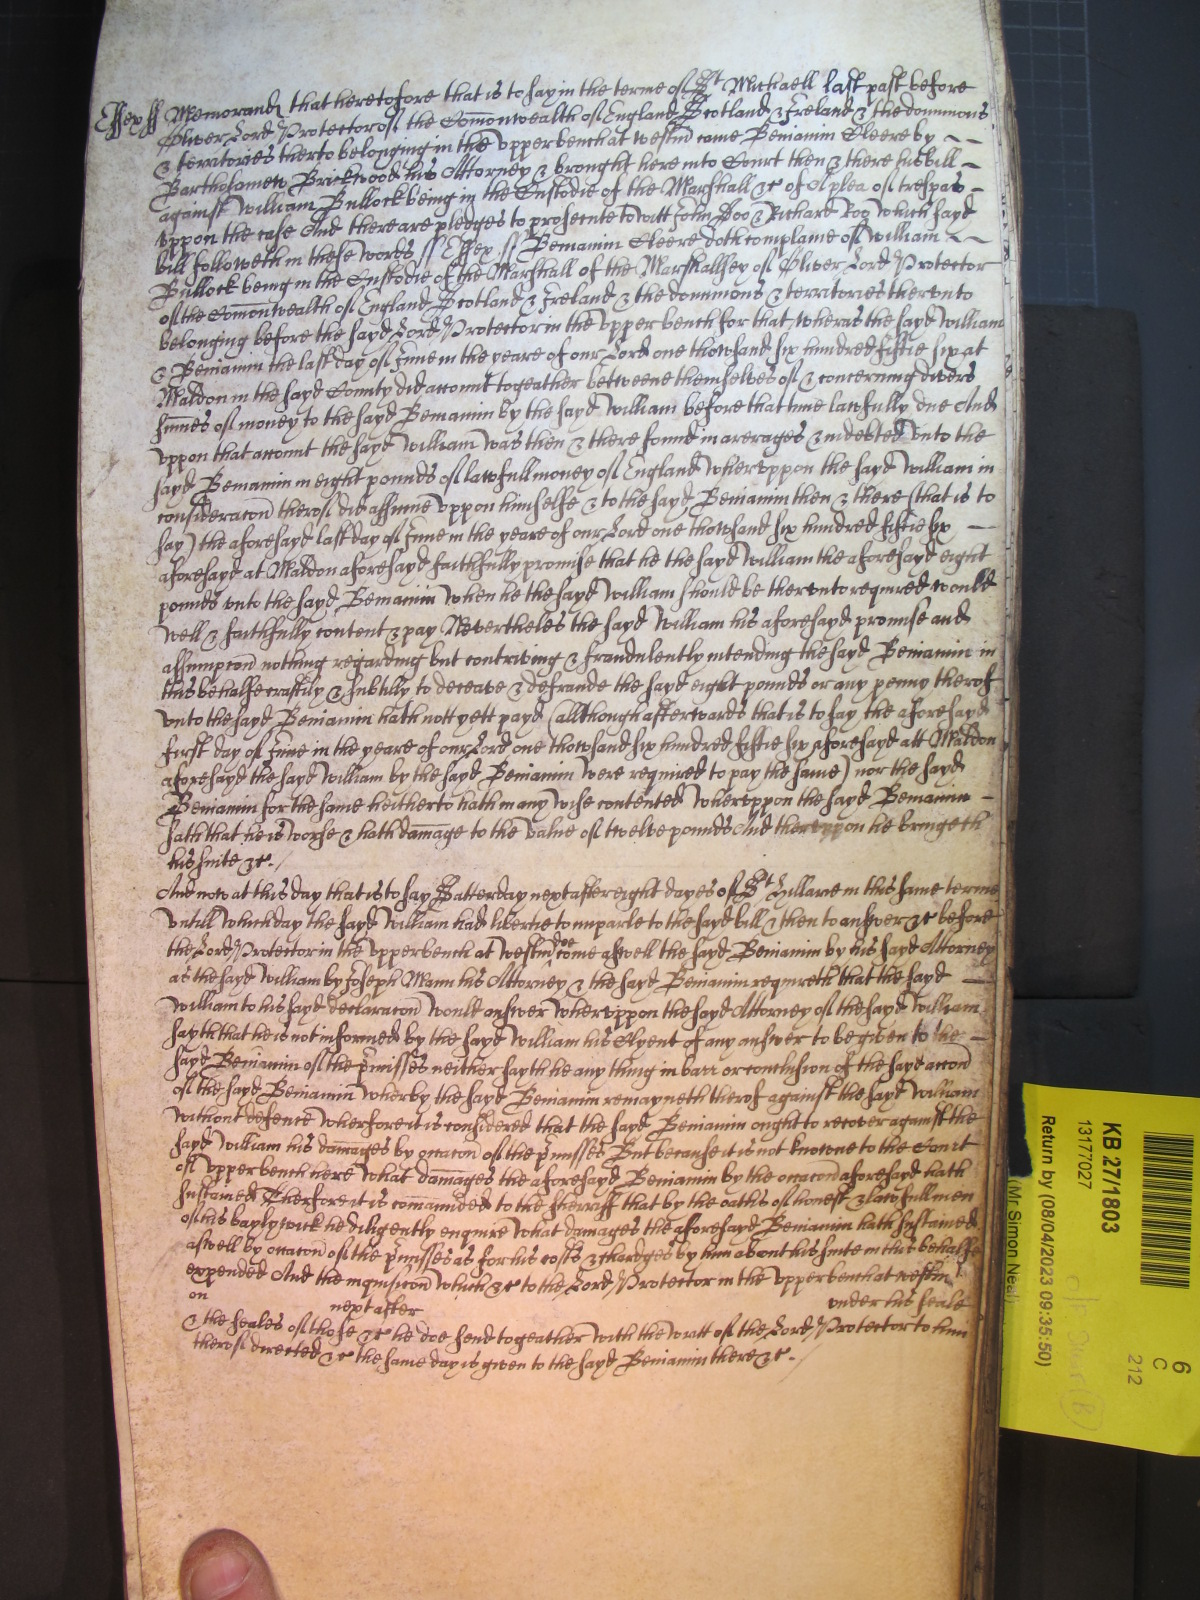 Essex ss Memorand that heretofore that is to say in the terme of St Michaell last past before
Oliver Lord Protector of the Comonwealth of England Scotland & Ireland & the dominions
& territories therto belonging in the vpper bench at westm came Beniamin Cleere by
Bartholomew Brickwood his Attorney & brought here into Court then & there his bill
against William Bullock being in the Custodie of the Marshall &c of A plea of trespas
vppon the case And there are pledges to prosecute to witt John Doo & Richard Roo Which sayd
bill followeth in these words ss Essex ss Beniamin Cleere doth complaine of William
Bullock being in the Custodie of the Marshall of the Marshallsey of Oliver Lord Protector
of the Comonwealth of England Scotland & Ireland & the dominions & territories thervnto
belonging before the sayd Lord Protector in the vpper bench for that, wheras the sayd William
& Beniamin the last day of June in the yeare of our Lord one thowsand six hundred fiftie six at
Maldon in the sayd County did accomt togeather betweene themselves of & concerning divers
sumes of money to the sayd Beniamin by the sayd William before that time lawfully due And
vppon that accomt the sayd William was then & there found in arerages & indebted vnto the
sayd Beniamin in eight pounds of lawfull money of England Whervppon the sayd William in
consideracon therof did assume vppon himselfe & to the sayd Beniamin then & there (that is to
say) the aforesayd last day of June in the yeare of our Lord one thowsand six hundred fiftie six
aforesayd at Maldon aforesayd faithfully promise that he the sayd William the aforesayd eight
pounds vnto the sayd Beniamin When he the sayd William should be thervnto required would
well & faithfully content & pay Nevertheles the sayd William his aforesayd promise and
assumpcon nothing regarding but contriving & fraudulently intending the sayd Beniamin in
this behalfe craftily & subtilly to deceave & defraude the sayd eight pounds or any penny therof
vnto the sayd Beniamin hath nott yett payd (allthough afterwards that is to say the aforesayd
first day of June in the yeare of our Lord one thowsand six hundred fiftie six aforesayd att Maldon
aforesayd the sayd William by the sayd Beniamin were required to pay the same) nor the sayd
Beniamin for the same heitherto hath in any wise contented Whervppon the sayd Beniamin
saith that he is worse & hath damage to the value of twelve pounds And thervppon he bringeth
his suite &c.
And now at this day that is to say Satterday next after eight dayes of St Hillarie in this same terme
vntill which day the sayd William had libertie to imparle to the sayd bill & then to answer &c before
the Lord Protector in the vpper bench at westm doe come aswell the sayd Beniamin by his sayd Attorney
as the sayd William by Joseph Mann his Attorney & the sayd Beniamin requireth that the sayd
William to his sayd declaracon would answer Whervppon the sayd Attorney of the sayd William
sayth that he is not informed by the sayd William his Clyent of any answer to be given to the
sayd Beniamin of the pmisses neither sayth he any thing in barr or conclusion of the sayd accon
of the sayd Beniamin Wherby the sayd Beniamin remayneth therof against the sayd William
without defence Wherfore it is considered that the sayd Beniamin ought to recover against the
sayd William his damages by occacon of the pmisses But because it is not knowne to the Court
of vpper bench here What damages the aforesayd Beniamin by the occacon aforesayd hath
sustained Therfore it is comanded to the sherriff that by the oaths of honest & lawfull men
of his baylywick he diligently enquire What damages the aforesayd Beniamin hath sustained
aswell by occacon of the pmisses as for his costs & chardges by him about his suite in this behalfe
expended And the inquisicon Which &c to the Lord Protector in the vpper bench at westm
on next after under his seale
& the seales of those &c he doe send togeather with the Writt of the Lord Protector to him
therof directed &c the same day is given to the sayd Beniamin there &c.
KB 27/1803
13177027
Return by (08/04/2023 09:35:50)
(Mr Simon Neal)
6
C
212